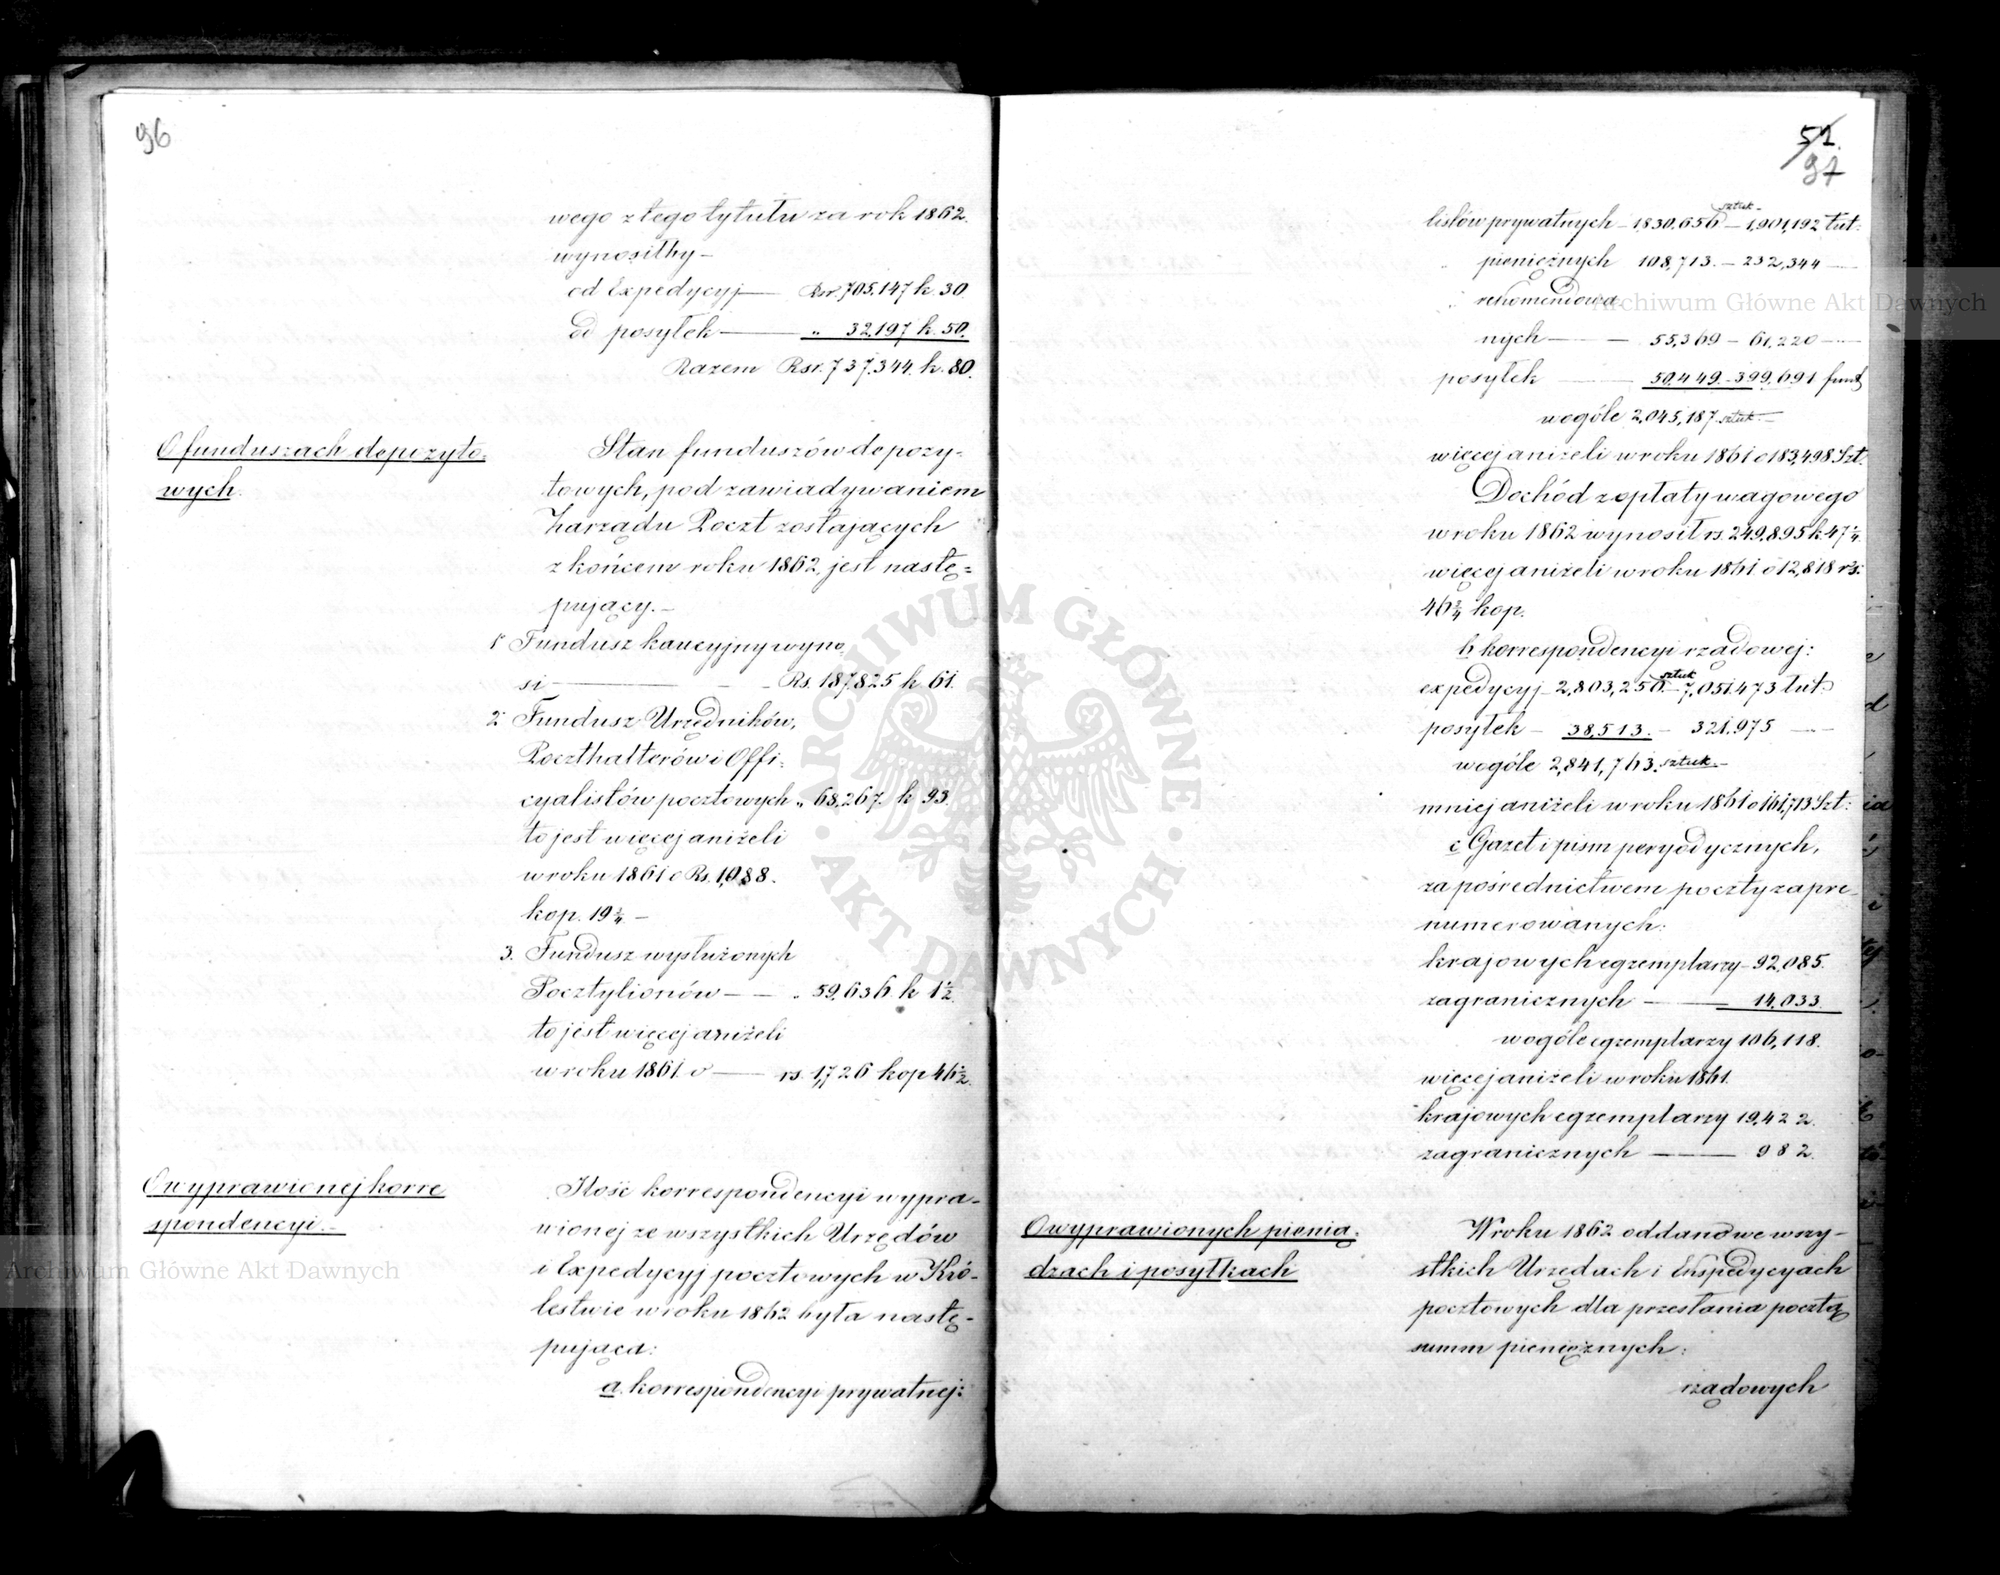 96
wego z tego tytułu za rok 1862.
wynosiłby –
od Expedycyj — Rsr. 705,147 k. 30.
od posyłek — „ 32,197 k. 50.
Razem Rsr. 737,344. k. 80.
O funduszach depozyto-
wych.
Stan funduszów depozy-
towych, pod zawiadywaniem
Zarządu Poczt zostających
z końcem roku 1862, jest nastę-
pujący. –
1 Fundusz kaucyjny wyno-
si — Rs. 187,825 k 61.
2 Fundusz Urzędników,
Poczthalterów i Offi-
cyalistów pocztowych „ 68,267. k 93.
to jest więcej aniżeli
w roku 1861 o Rs. 1,088.
kop. 19 3/4 –
3. Fundusz wysłużonych
Pocztylionów — „ 59,636 k 1 1/2.
to jest więcej aniżeli
w roku 1861. o — rs. 1,726 kop 46 1/2.
O wyprawionej korre
spondencyi. –
Ilość korrespondencyi wypra-
wionej ze wszystkich Urzędów
i Expedycyj pocztowych w Kró-
lestwie w roku 1862 była nastę-
pująca:
a. korrespondencyi prywatnej:
51.
97
listów prywatnych – 1,830,656 sztuk – 1,901,192 łut:
„ pieniężnych 108,713. – 232,344 —
„ rekomendowa-
nych — 55,369 – 61,220 —
posyłek — 50,449. – 399,691 funt
wogóle 2,045,187. sztuk. –
więcej aniżeli w roku 1861 o 183,498 Szt.
Dochód z opłaty wagowego
w roku 1862 wynosił rs. 249,895 k 47 1/4.
więcej aniżeli w roku 1861 o 12,818 rs.
46 3/4 kop.
b korrespondencyi rządowej:
expedycyj – 2,803,250. sztuk – 7,051,473 łut:
posyłek – 38,513. – 321,975 —
wogóle 2,841,763. sztuk. –
mniej aniżeli w roku 1861 o 161,713 Szt:
c Gazet i pism peryodycznych,
za pośrednictwem poczty zapre-
numerowanych:
krajowych egzemplarzy – 92,085.
zagranicznych — 14,033.
wogóle egzemplarzy 106,118.
więcej aniżeli w roku 1861.
krajowych egzemplarzy 19,422.
zagranicznych — 982.
O wyprawionych pienią-
dzach i posyłkach
W roku 1862 oddano we wszy-
stkich Urzędach i Ekspedycyach
pocztowych dla przesłania pocztą
summ pieniężnych:
rządowych
ARCHIWUM GŁÓWNE AKT DAWNYCH
Archiwum Główne Akt Dawnych
Archiwum Główne Akt Dawnych